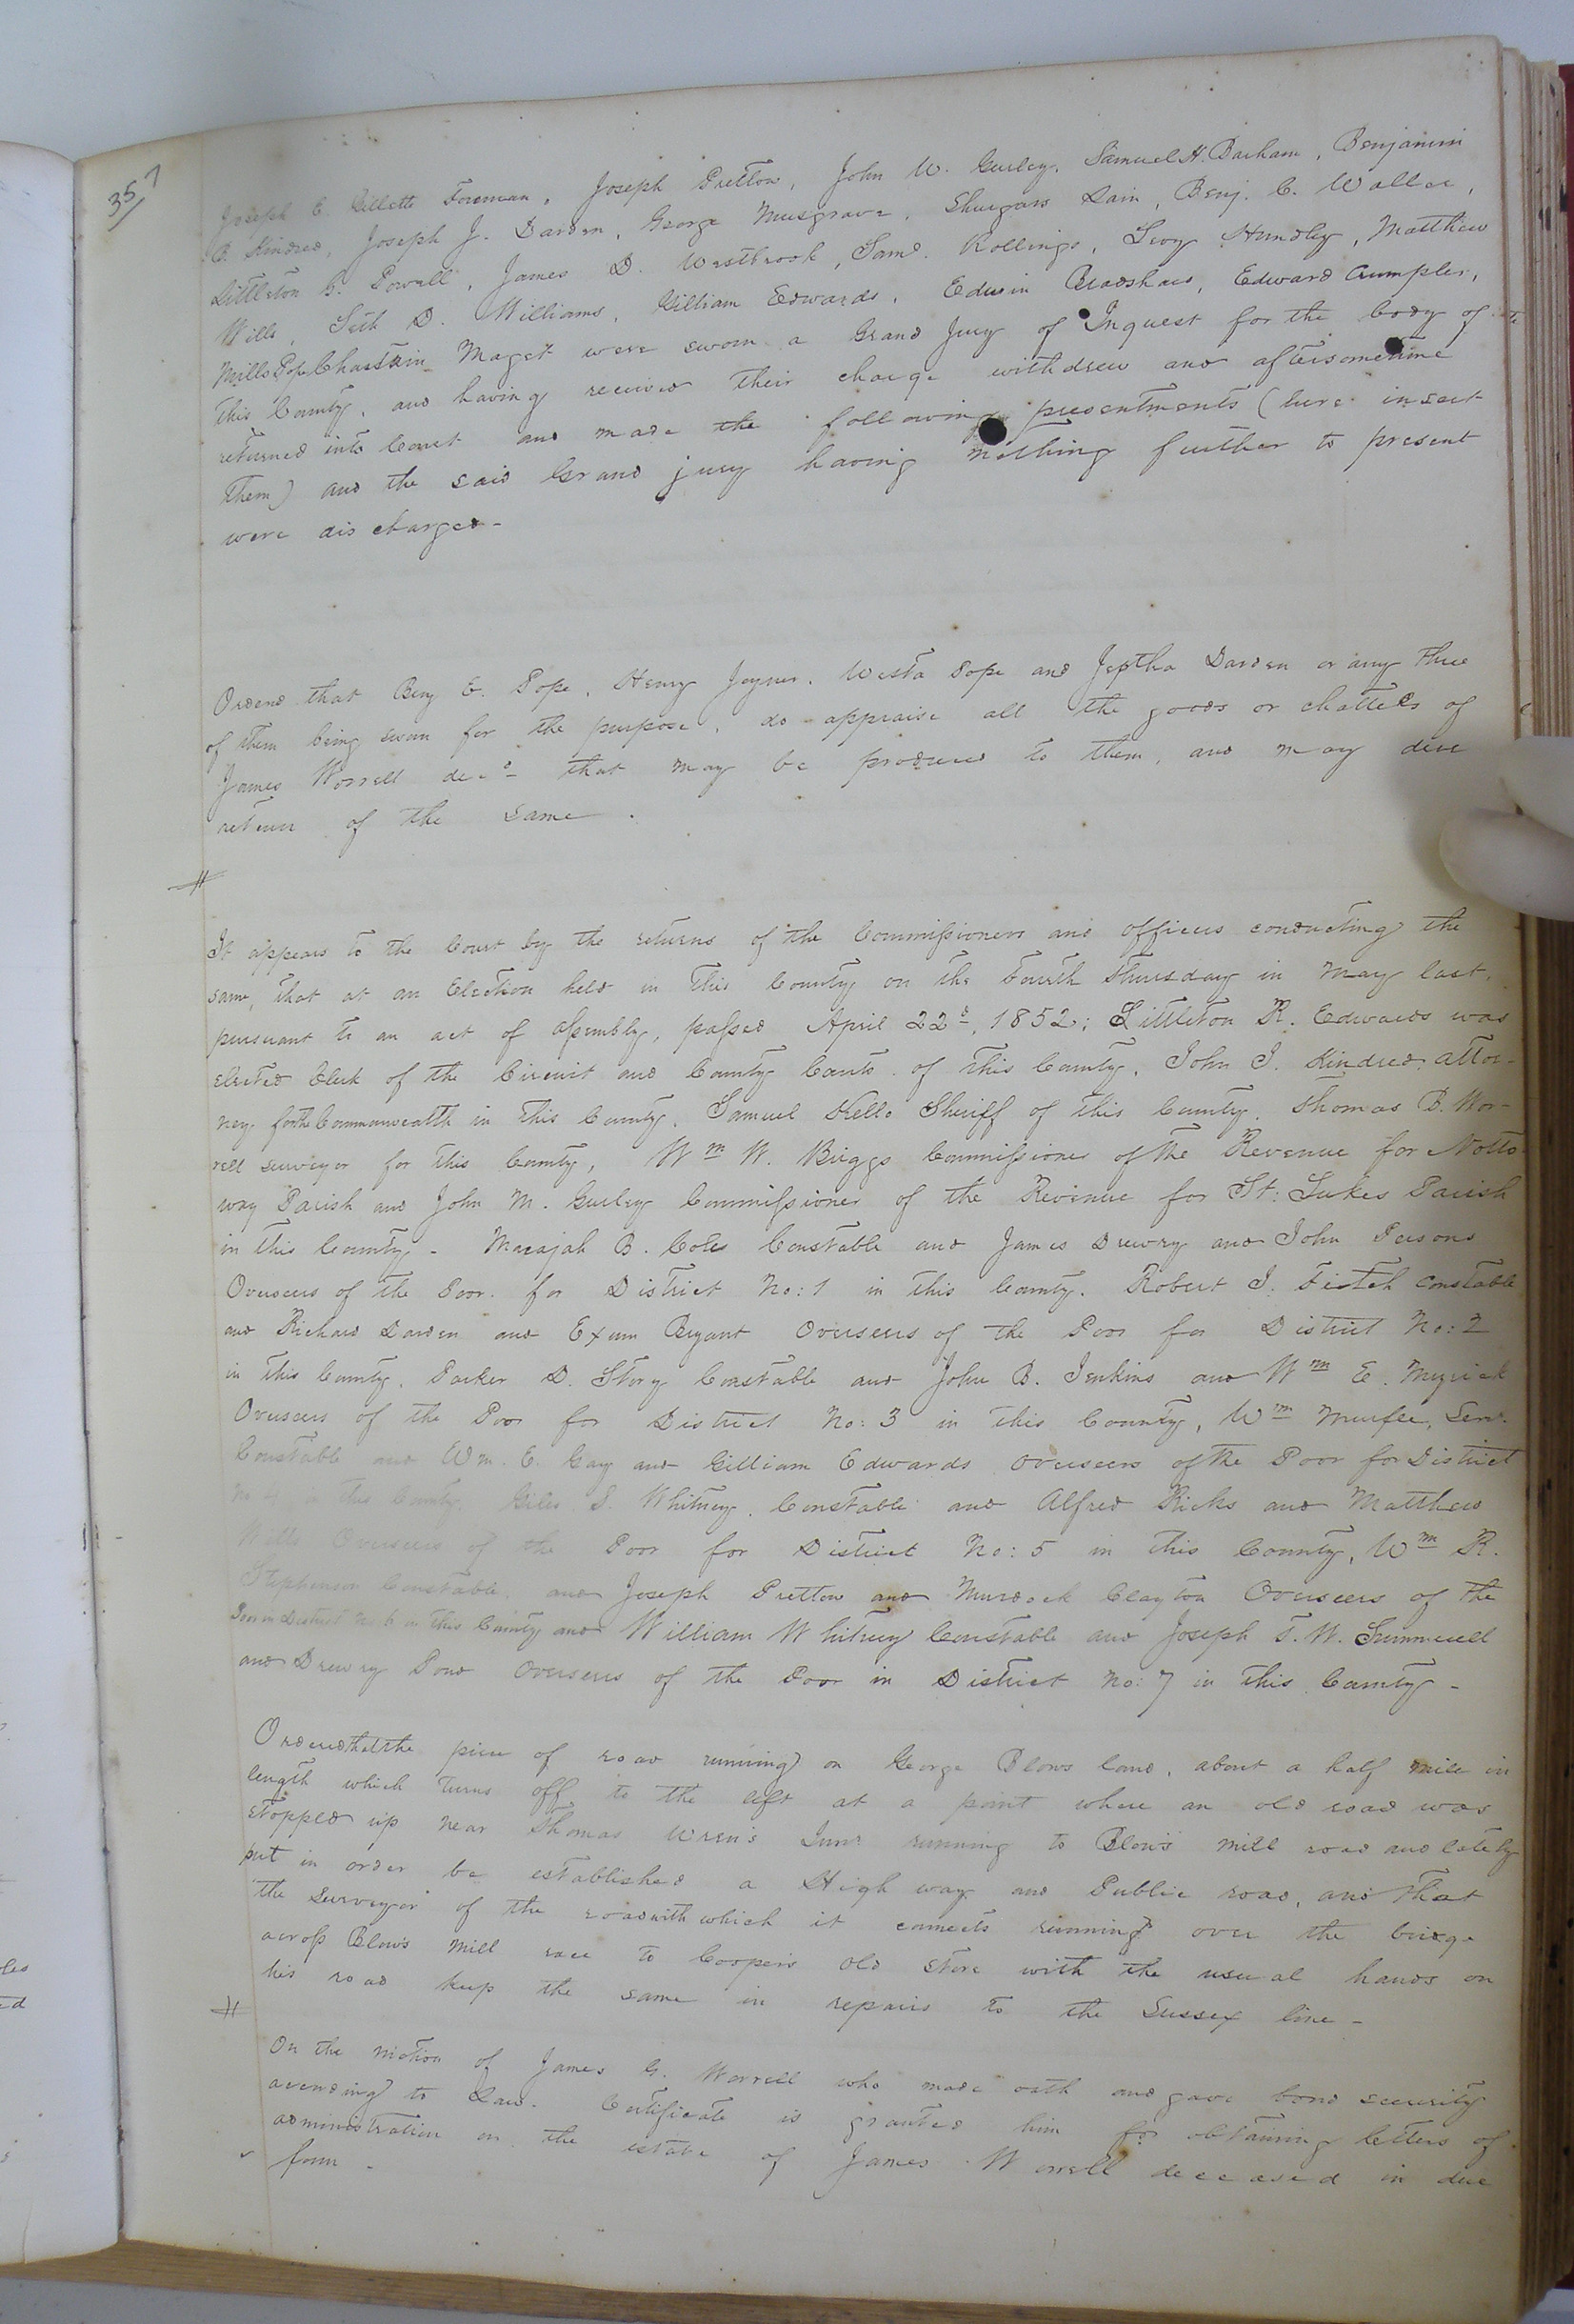 357
Joseph E. Gillette Foreman, Joseph Pretlow, John W. Gurley, Samuel H. Barham, Benjamin
B. Kindred, Joseph J. Darden, George Musgrave, Lain, Benj. C. Waller,
Littleton G. Powell, James D. Westbrook, Saml. Rollings, Levy Hundley, Matthew
Wills, Seth D. Williams, Gilliam Edwards, Edwin Bradshaw, Edward Crumpler,
Mills Pope Chastain Maget were sworn a Grand Jury of Inquest for the body of
this County, and having received their charge withdrew and after sometime
returned into Court and made the following presentments (here insert
them) and the said Grand jury having nothing further to present
were discharged -
Ordered that Benj E. Pope, Henry Joyner, Pope and Jeptha Darden or any three
of them being sworn for the purpose, do appraise all the goods or chattels of
James Worrell decd that may be produced to them, and may due
return of the same .
It appears to the Court by the returns of the Commissioners and officers conducting the
same, that at an Election held in this County on the Fourth Thursday in May last,
pursuant to an act of assembly, passed April 22d, 1852; Littleton R. Edwards was
elected Clerk of the Circuit and County Courts of this County, John J. Kindred attor-
ney for the Commonwealth in this County, Samuel Kello Sheriff of this County, Thomas B. Wor-
rell surveyor for this County, Wm W. Briggs Commissioner of the Revenue for Notto
way Parish and John M. Gurley Commissioner of the Revenue for St: Lukes Parish
in this County - Macajah B. Coles Constable and James Drewry and John Persons
Overseers of the Poor for District No: 1 in this County. Robert J. Constable
and Richard Darden and Exum Bryant Overseers of the Poor for District No: 2
in this County, Parker D. Story Constable and John B. Jenkins and Wm E. Myrick
Overseers of the Poor for District No: 3 in this County, Wm Murfee, Senr.
Constable and Wm. E. Gay and Gilliam Edwards overseers of the Poor for District
No 4 in this County, Giles S. Whitney Constable and Alfred Ricks and Matthew
Wills Overseers of the Poor for District No: 5 in this County, Wm R.
Stephenson Constable and Joseph Pretlow and Murdock Clayton Overseers of the
Poor in District No: 6 in this County and William Whitney Constable and Joseph T. W. Summerell
and Drewry Pond Overseers of the Poor in District No: 7 in this County -
Ordered that the piece of road running on George Blows land, about a half mile in
length which turns off to the left at a point where an old road was
stopped up near Thomas Wren's Junr running to Blow's mill road and lately
put in order be established a High way and Public road, and that
the Surveyor of the road with which it connects running over the bridge
across Blow's Mill race to Cooper's old store with the usual hands on
his road keep the same in repairs to the Sussex line -
On the motion of James G. Worrell who made oath and gave bond security
according to Law. Certificate is granted him for obtaining letters of
administration on the estate of James Worrell deceased in due
form -